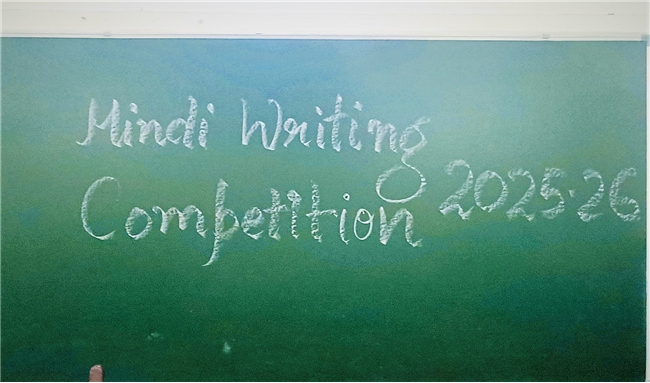 Hindi Writing
Competition 2025-26